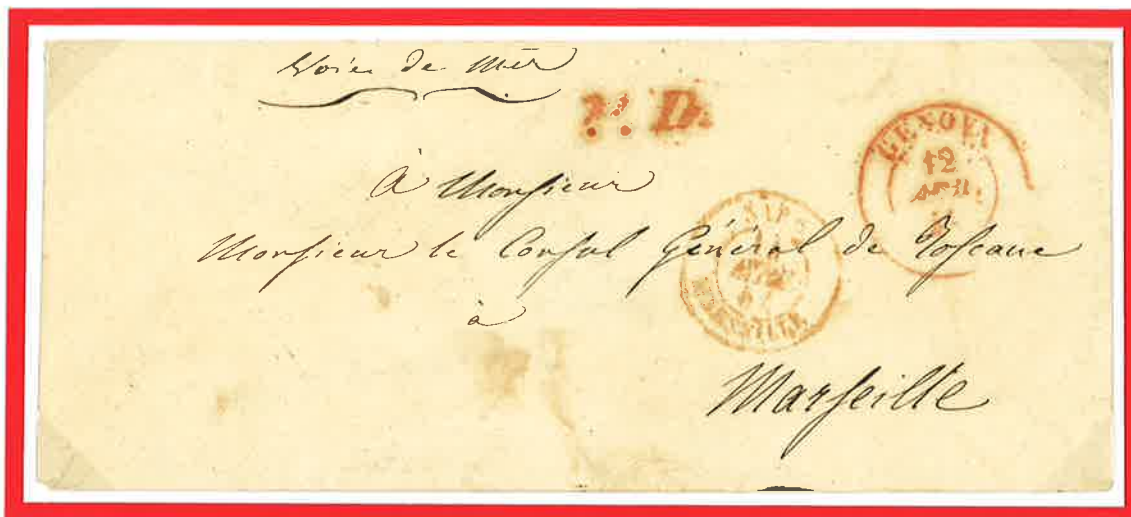 Voie de Mer
P. D.
GENOVA
12
APR.
À Monsieur
Monsieur le Consul Général de Toscane
à
MARSEILLE
Marseille